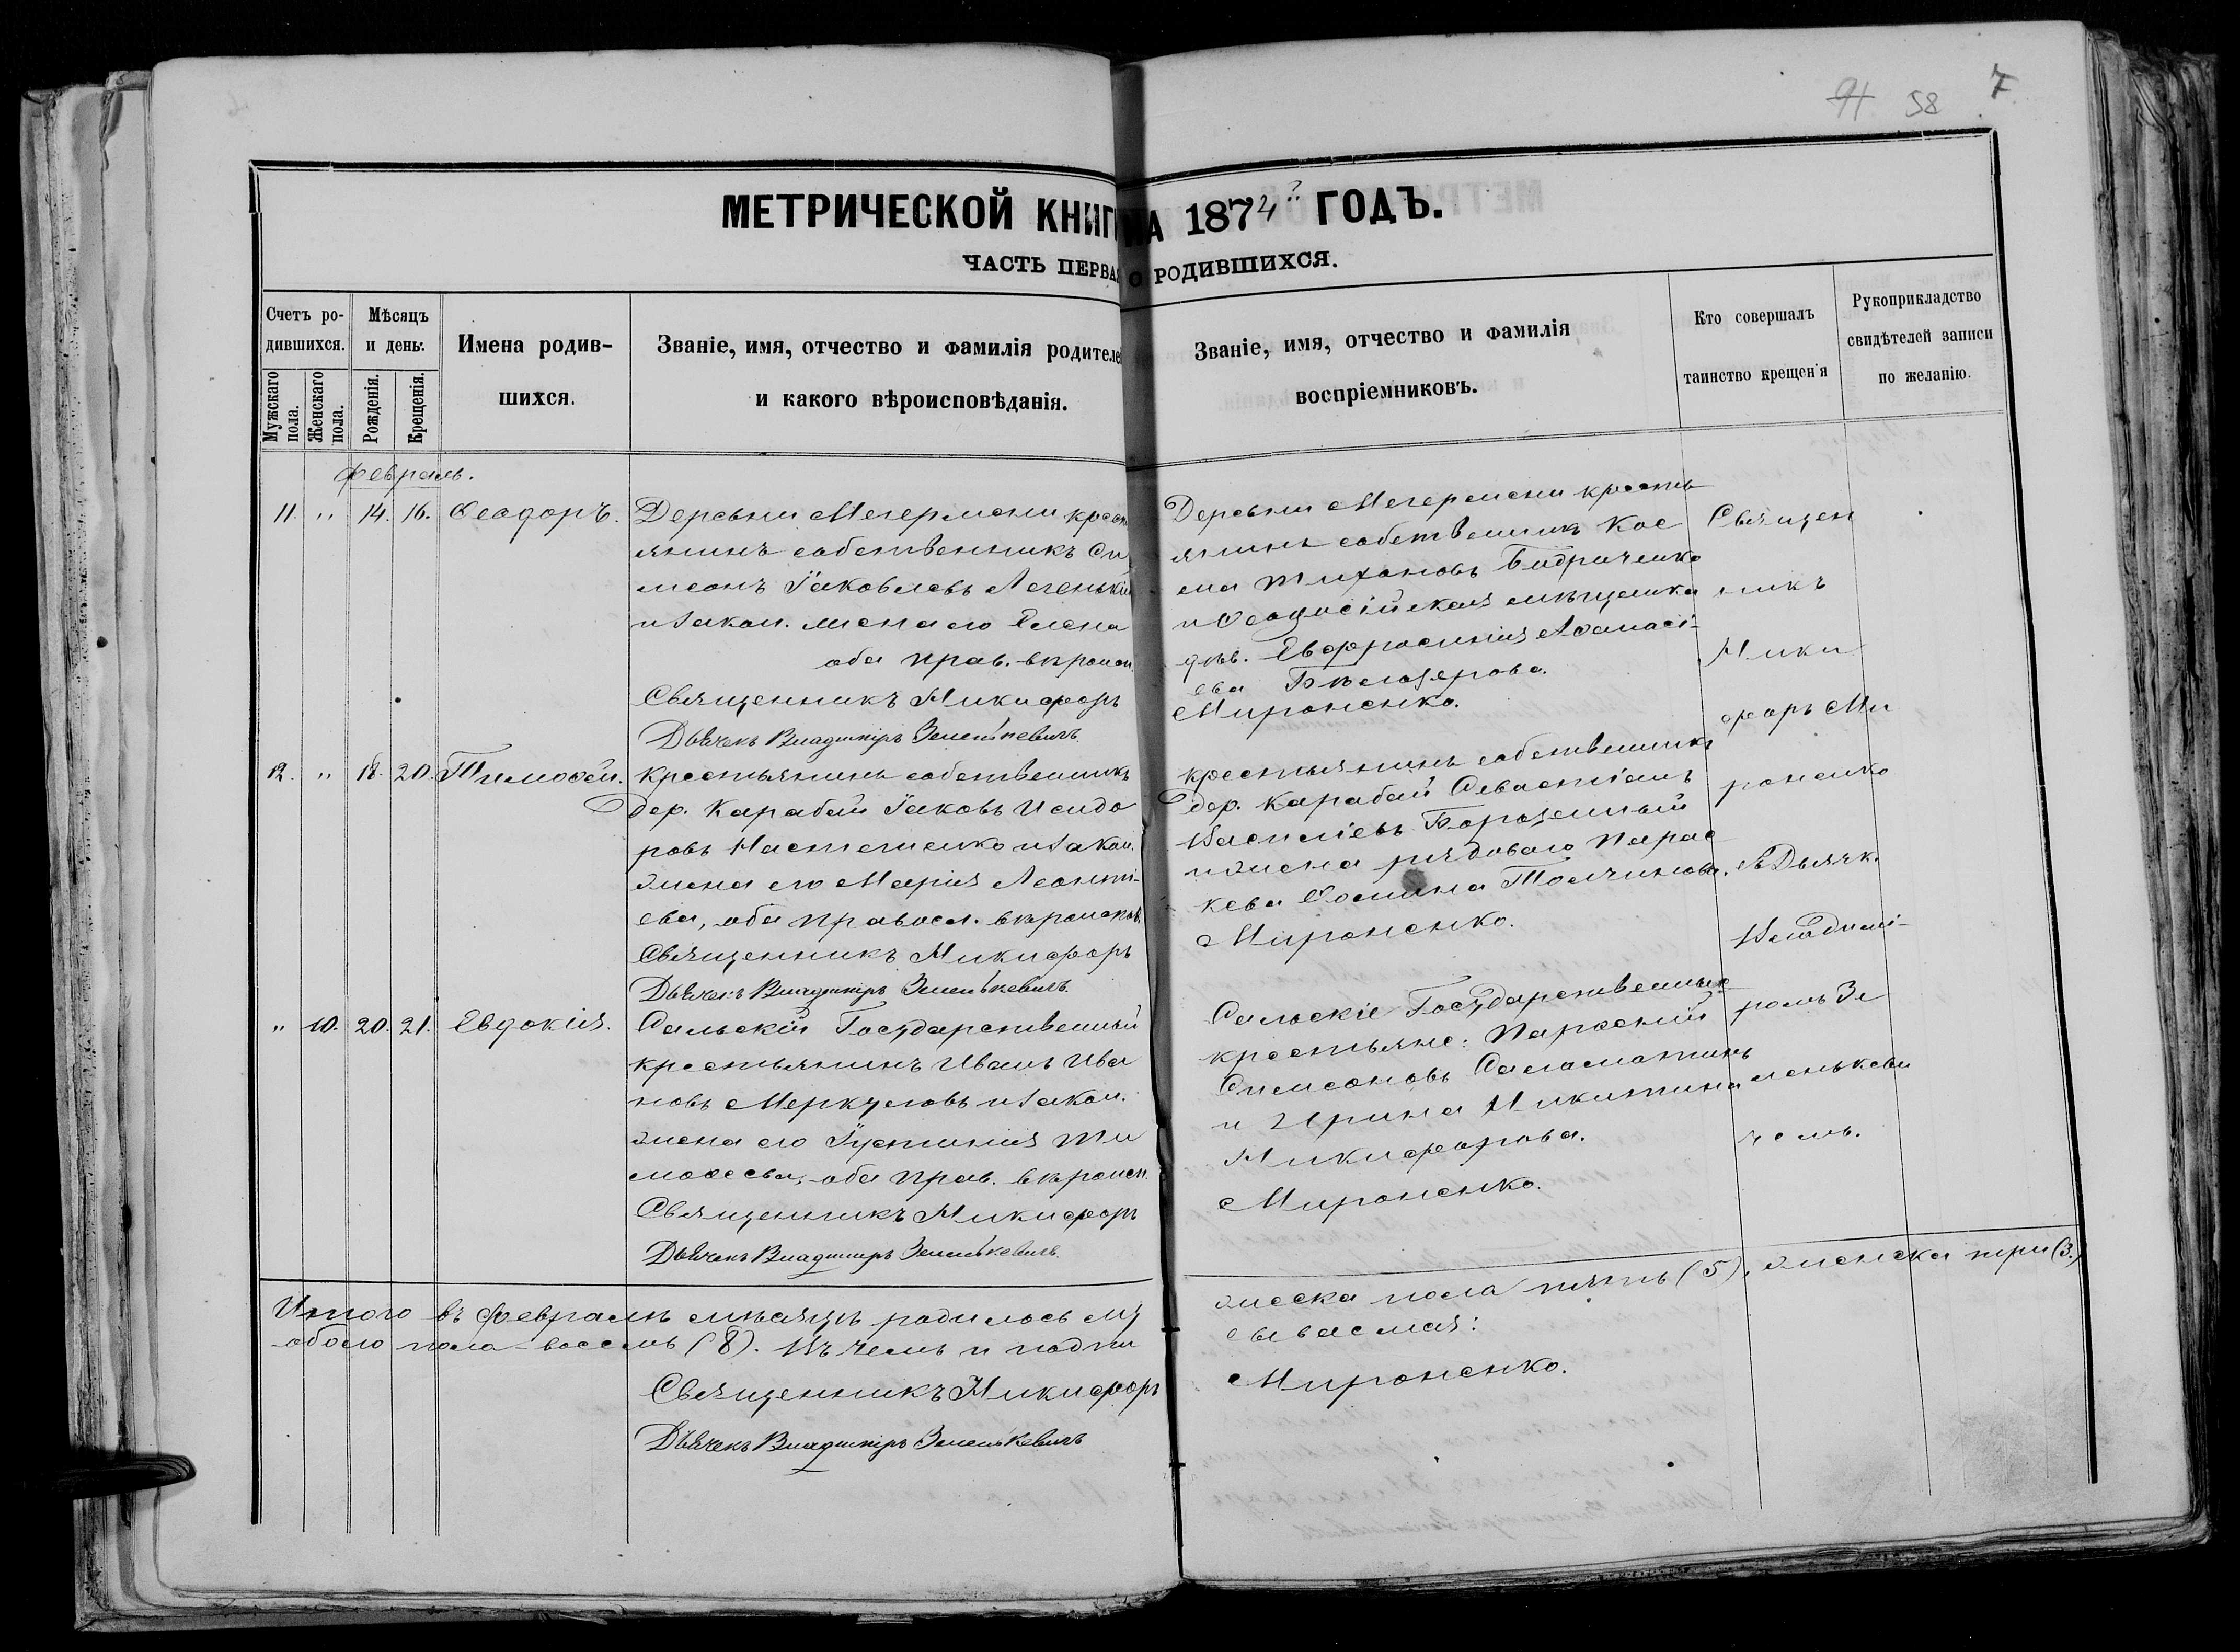 91 58 7
МЕТРИЧЕСКОЙ КНИГ НА 1874й ГОДЪ.
ЧАСТЬ ПЕРВАЯ О РОДИВШИХСЯ.
Счетъ ро-
дившихся.
Мужскаго пола.
Женскаго пола.
Мѣсяцъ
и день.
Рожденія.
Крещенія.
Имена родив-
шихся.
Званіе, имя, отчество и фамилія родителе
и какого вѣроисповѣданія.
Званіе, имя, отчество и фамилія
воспріемниковъ.
Кто совершалъ
таинство крещенія
Рукоприкладство
свидѣтелей записи
по желанію.
Февраль.
11. " 14. 16. Ѳеодоръ.
Деревни кресть
янинъ собственникъ Си
меонъ Іаковлевъ Легенькій
и закон. жена его Елена
оба прав. вѣроисп.
Священникъ Никифоръ
Дьячекъ Владиміръ Зеленкевичъ.
Деревни кресть
янинъ собственникъ Кос
ма Тихоновъ
и Ѳеодосійская мѣщанка
дѣв. Евфросинія Аѳанасі-
ева Бѣлозерова.
Мироненко.
12. " 18. 20. Тимоѳей.
крестьянинъ собственникъ
дер. Карабай Іаковъ Исидо
ровъ и закон.
жена его Марія Леонті-
ева, оба правосл. вѣроиспов.
Священникъ Никифоръ
Дьячекъ Владиміръ Зеленкевичъ.
крестьянинъ собственникъ
дер. Карабай Севастіанъ
Василіевъ
и жена рядоваго Парас
кева Ѳомина
Мироненко.
" 10. 20. 21. Евдокія.
Сальскій Государственный
крестьянинъ Иванъ Ива
новъ Меркуловъ и закон.
жена его Іустинія Ти
моѳеева, оба прав. вѣроисп.
Священникъ Никифоръ
Дьячекъ Владиміръ Зеленкевичъ.
Сальскіе Государственные
крестьяне:
Симеоновъ Саламатинъ
и Ирина Никитина
Никифорова.
Мироненко.
Священ
никъ
Ники
форъ Ми
роненко
съ Дьячк.
Владимі-
ромъ Зе
ленькеви
чемъ.
Итого въ Февралѣ мѣсяцѣ родилось му
жеска пола пять (5), женска три (3.)
обоего пола восемь (8). Въ чемъ и подпи
сываемся:
Священникъ Никифоръ
Мироненко.
Дьячекъ Владиміръ Зеленкевичъ